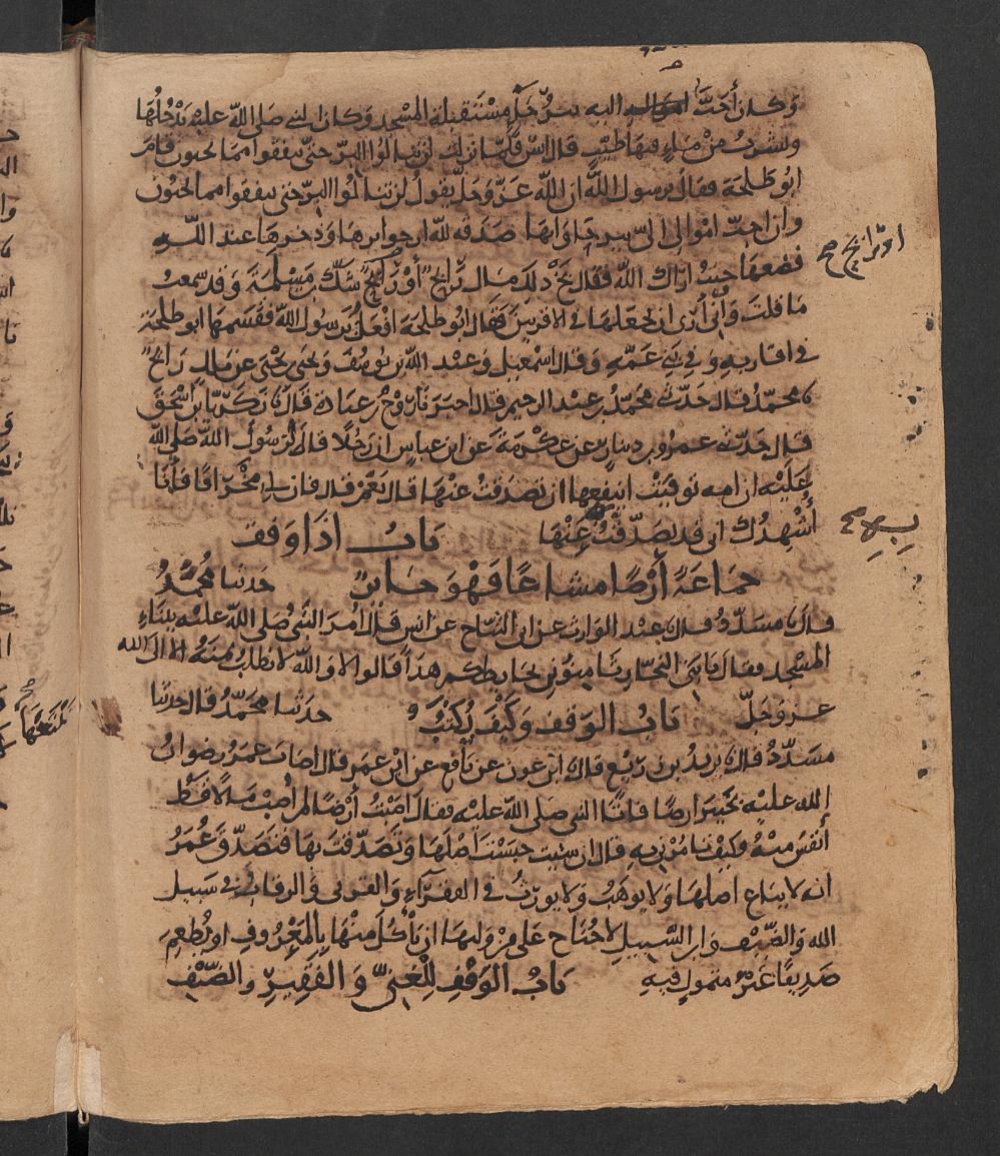 وكان أحب أمواله اليه بيرحا مستقبلة المسجد وكان النبي صلى الله عليه يدخلها
ويشرب من ماء فيها طيب قال انس فلما نزلت لن تنالوا البر حتى تنفقوا مما تحبون قام
ابو طلحة فقال يرسول الله ان الله عز وجل يقول لن تنالوا البر حتى تنفقوا مما تحبون
وان احب اموالي الي بيرحا وانها صدقة لله ارجوا برها وذخرها عند الله
فضعها حيث اراك الله فقال بخ ذلك مال رابح أو رايح شك بن مسلمة وقد سمعت
ما قلت وأني أرى ان تجعلها في الاقربين فقال ابو طلحة افعل يرسول الله فقسمها ابو طلحة
في اقاربه وفي بني عمه وقال اسمعيل وعبد الله بن يوسف ويحيى بن يحيى عن مالك رايح
نا محمد قال حدثني محمد بن عبد الرحيم قال اخبرنا روح بن عبادة قال نا زكريا بن اسحق
قال حدثني عمرو بن دينار عن عكرمة عن ابن عباس ان رجلا قال لرسول الله صلى الله
عليه ان امه توفيت اينفعها ان تصدقت عنها قال نعم قال فان لي مخرافا فأنا
أشهدك اني قد تصدقت عنها باب اذا وقف
جماعة أرضا مشاعا فهو جائز حدثنا محمد
قال نا مسدد قال نا عبد الوارث عن ابي التياح عن انس قال أمر النبي صلى الله عليه ببناء
المسجد فقال يا بني النجار ثامنوني بحائطكم هذا قالوا لا والله لا نطلب ثمنه الا الى الله
عز وجل باب الوقف وكيف يكتب حدثنا محمد قال حدثنا
مسدد قال نا يزيد بن زريع قال نا ابن عون عن نافع عن ابن عمر قال اصاب عمر رضوان
الله عليه بخيبر ارضا فاتا النبي صلى الله عليه فقال اصبت أرضا لم أصب مالا قط
أنفس منه وكيف تامرني به قال ان شيت حبست اصلها وتصدقت بها فتصدق عمر
انه لا يباع اصلها ولا يوهب ولا يورث في الفقراء والقربى والرقاب وفي سبيل
الله والضيف وابن السبيل لا جناح على من وليها ان يأكل منها بالمعروف او يطعم
صديقا غير متمول فيه باب الوقف للغني والفقير والضيف
او رايح صح
به صح